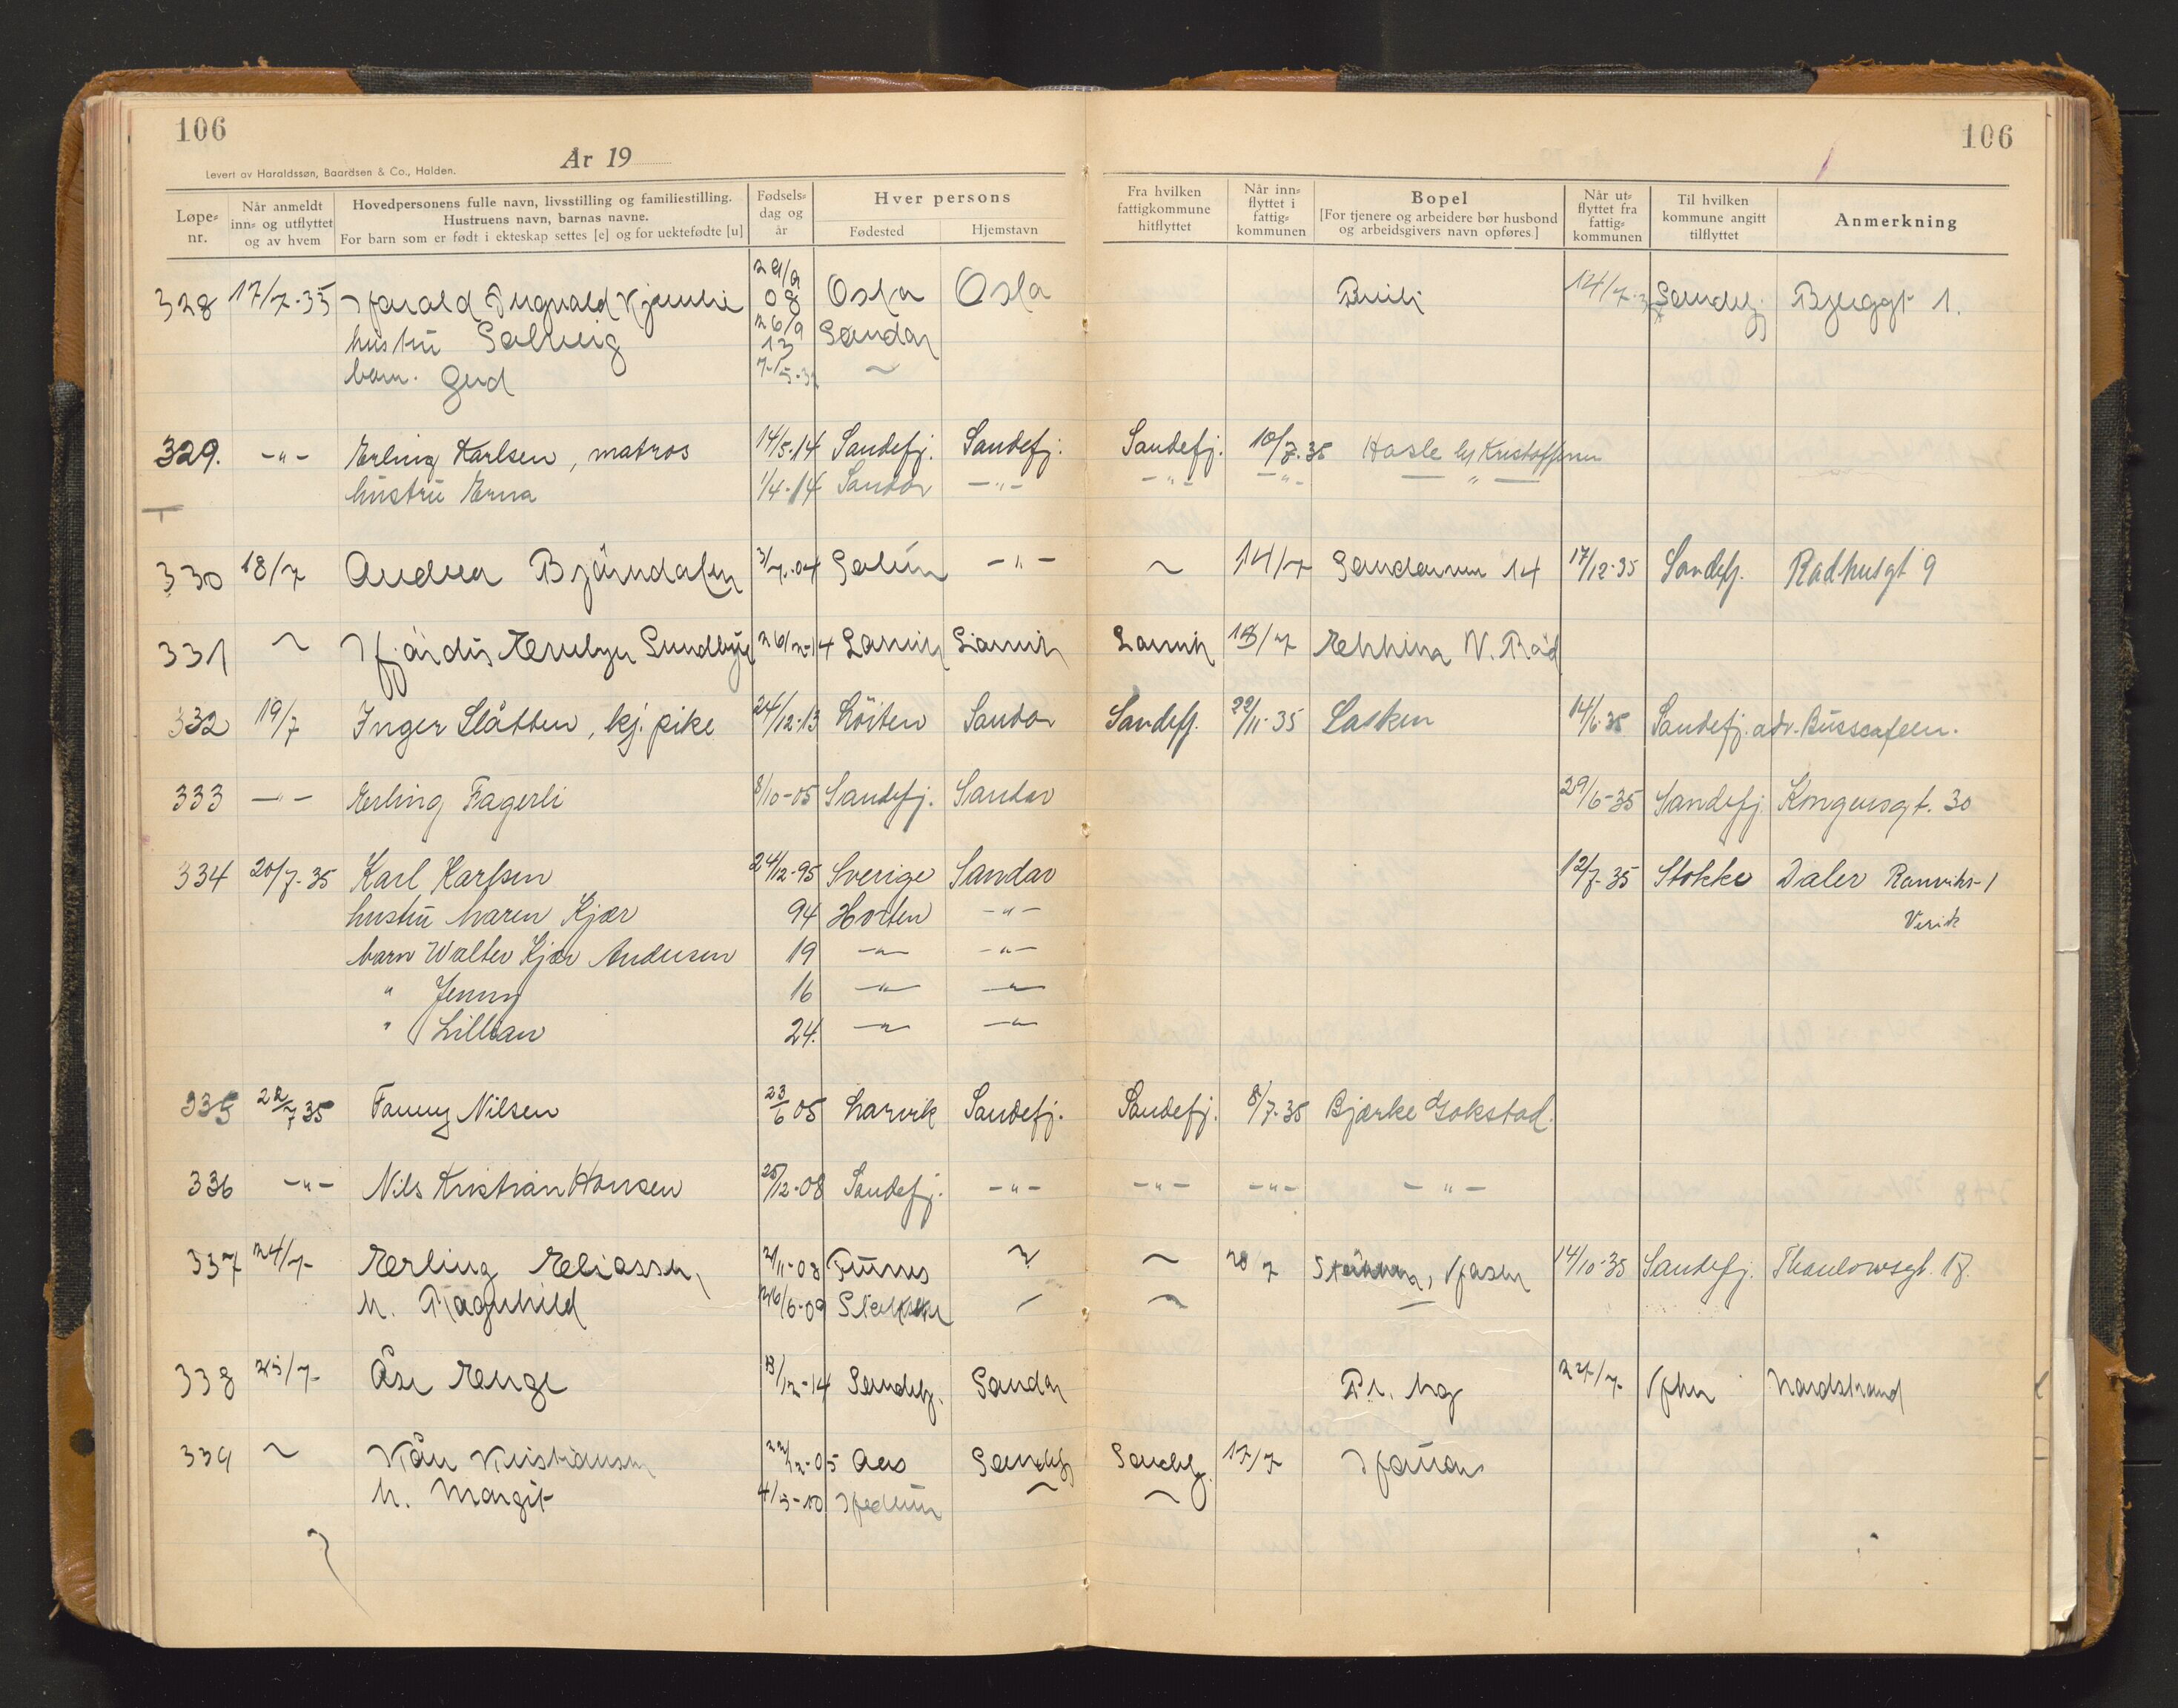 106
106
År 19
Levert av Haraldssøn, Baardsen & Co., Halden.
Løpe-nr. Når anmeldt inn- og utflyttet og av hvem Hovedpersonens fulle navn, livsstilling og familiestilling. Hustruens navn, barnas navne. For barn som er født i ekteskap settes [e] og for uektefødte [u] Fødsels-dag og år Hver persons Fødested Hjemstavn Fra hvilken fattigkommune hitflyttet Når inn-flyttet i fattig-kommunen Bopel [For tjenere og arbeidere bør husbond og arbeidsgivers navn opføres] Når ut-flyttet fra fattig-kommunen Til hvilken kommune angitt tilflyttet Anmerkning
328 17/7-35 Harald Ingvald 08 Oslo Oslo 14/7-35 Sandefj. Bjerggt 1.
hustru Solveig 26/9 13 Sandar
barn. Gerd ~
329. -"- Erling Karlsen, matros 14/5-14 Sandefj. Sandefj. Sandefj. 10/7-35 Hasle
hustru Erna 1/4-14 Sandar -"- -"- -"- -"-
330 18/7 Andrea Bjørndalen 3/7-04 -"- ~ 14/7 14 17/12-35 Sandefj. Rådhusgt 9
331 ~ Hjørdis Sundbye 26/2-14 Larvik Larvik Larvik 18/7 Ekkina N. Råd
332 19/7 Inger Slåtten, kj. pike 24/12-13 Løiten Sandar Sandefj. 22/11-35 Lasken 14/6-35 Sandefj. adr. Busscafeen.
333 -"- Erling Fagerli 8/10-05 Sandefj. Sandar 29/6-35 Sandefj. Kongensgt. 30
334 20/7-35 Karl Karlsen 24/12-95 Sverige Sandar 12/7-35 Stokke Daler
hustru Maren Kjær 94 Horten -"-
barn Walter Kjær Andersen 19 -"- -"-
" Jenny 16 -"- -"-
" Lillian 24. -"- -"-
335 22/7 35 Fanny Nilsen 23/6 05 Larvik Sandefj. Sandefj. 8/7-35 Bjærke Gokstad.
336 -"- Nils Kristian Hansen 25/12-08 Sandefj. -"- -"- -"- -"-
337 24/7- Erling Eliassen 2/11-08 ~ ~ 20/7 14/10-35 Sandefj. Thaulowsgt. 18.
h. Ragnhild 26/6-09 ~
338 25/7- Åse Enge 13/12-14 Sandefj. Sandar Pr. 24/7- Nordstrand
339 ~ Kåre Kristiansen 22/12-05 Aas Sandefj. Sandefj. 17/7
h. Margit 4/5-10 Hedrum ~ ~